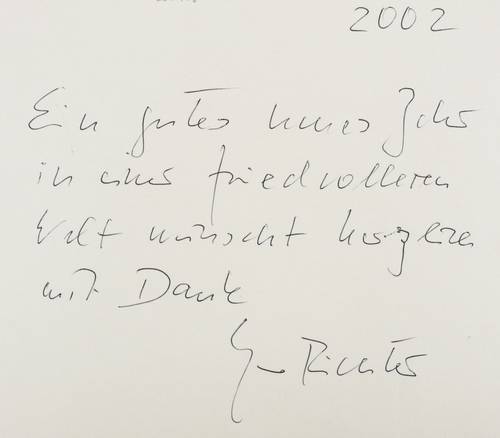 2002
Ein gutes neues Jahr
in einer friedvolleren
Welt wünscht herzlich
mit Dank
Richter